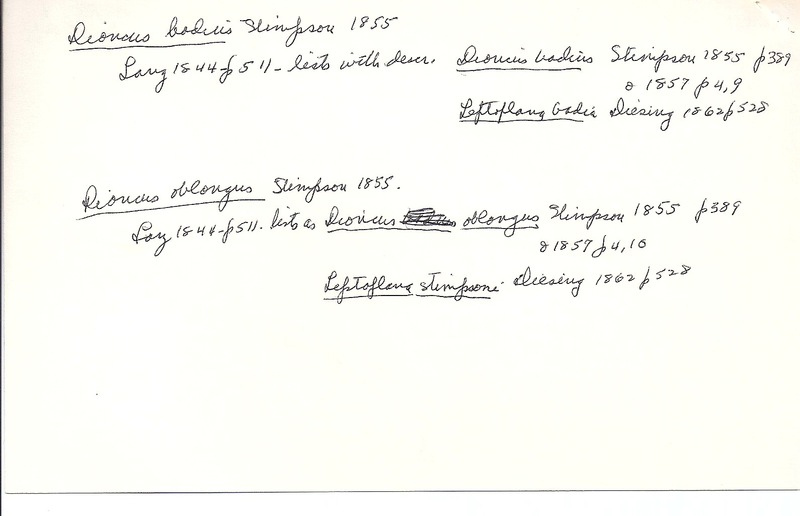 Dioncus badius Stimpson 1855
Lang 1844 p511 - lists with descr. Dioncus badius Stimpson 1855 p389
& 1857 p4,9
Leptoplana badia Diesing 1862 p528
Dioncus oblongus Stimpson 1855.
Lang 1844 - p511. lists as Dioncus oblongus Stimpson 1855 p389
& 1857 p4,10
Leptoplana stimpsoni Diesing 1862 p528